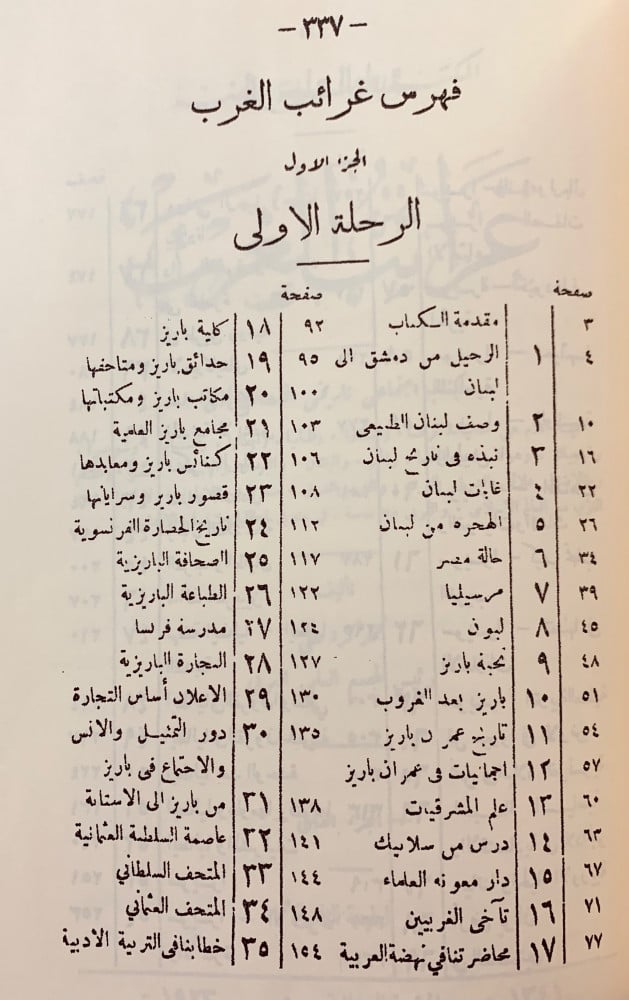 – ٣٣٧ –
فهرس غرائب الغرب
الجزء الاول
الرحلة الاولى
صفحة
٣ مقدمة الكتاب
٤ ١ الرحيل من دمشق الى
لبنان
١٠ ٢ وصف لبنان الطبيعى
١٦ ٣ نبذه فى تاريخ لبنان
٢٢ ٤ غابات لبنان
٢٦ ٥ الهجره من لبنان
٣٤ ٦ حالة مصر
٣٩ ٧ مرسيليا
٤٥ ٨ ليون
٤٨ ٩ تحية باريز
٥١ ١٠ باريز بعد الغروب
٥٤ ١١ تاريخ عمران باريز
٥٧ ١٢ اجماليات فى عمران باريز
٦٠ ١٣ علم المشرقيات
٦٣ ١٤ درس من سلانيك
٦٧ ١٥ دار معونه العلماء
٧١ ١٦ تآخى الغربيين
٧٧ ١٧ محاضرتنافي نهضة العربية
صفحة
٩٢ ١٨ كلية باريز
٩٥ ١٩ حدائق باريز ومتاحفها
١٠٠ ٢٠ مكاتب باريز ومكتباتها
١٠٣ ٢١ مجامع باريز العلمية
١٠٦ ٢٢ كنائس باريز ومعابدها
١٠٨ ٢٣ قصور باريز وسراياتها
١١٢ ٢٤ تاريخ الحضارة الفرنسوية
١١٧ ٢٥ الصحافة الباريزية
١٢٢ ٢٦ الطباعة الباريزية
١٢٤ ٢٧ مدرسة فرنسا
١٢٧ ٢٨ التجارة الباريزية
١٣٠ ٢٩ الاعلان أساس التجارة
١٣٥ ٣٠ دور التمثيل والانس
والاجتماع فى باريز
١٣٨ ٣١ من باريز الى الاستانة
١٤١ ٣٢ عاصمة السلطنة العثمانية
١٤٤ ٣٣ المتحف السلطاني
١٤٨ ٣٤ المتحف العثماني
١٥٤ ٣٥ خطابنافى التربية الأدبية